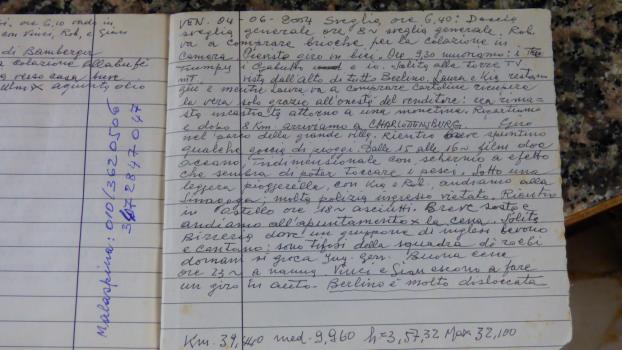 si. ore 6,10 vado in
con Vinci, Rob, e Gian
di Bamberger
a colazione
verso casa
aggiunto olio
Malaspina: 010/3620506
3472847047
VEN. 04 - 06 - 2004 Sveglia ore 6,40: Doccia
sveglia generale ore 8~ sveglia generale. Rob.
va a comprare brioche per la colazione in
camera. Previsto giro in bici. Ore 9,30 muoviamo: i
e io. Salita alla torre TV.
mT. vista dall'alto di tutto Berlino. Laura e Kia restano
giù e mentre Laura va a comprare cartoline recupera
la vera solo grazie all'onestà del venditore: era rima-
sta incastrata attorno a una monetina. Ripartiamo
e dopo 8 Km arriviamo a CHARLOTTENBURG. Giro
nel parco della grande villa. Rientro breve spuntino
qualche goccia di pioggia. Dalle 15 alle 16~ film doc
oceano, tridimensionale con schermo a effetto
che sembra di poter toccare i pesci. Sotto una
leggera pioggerella, con Kia e Rob, andiamo alla
Sinagoga: molta polizia ingresso vietato. Rientro
in Ostello ore 18~ asciutti. Breve sosta e
andiamo all'appuntamento x la cena. Solita
Birreria dove un gruppone di inglesi bevono
e cantano: sono tifosi della squadra di
domani si gioca Ing. Ger. Buona cena
ore 23~ a nanna, Vinci e Gian escono a fare
un giro in auto. Berlino è molto dislocata
Km. 39,440 med. 9,960 h=3,57,32 Max 32,100